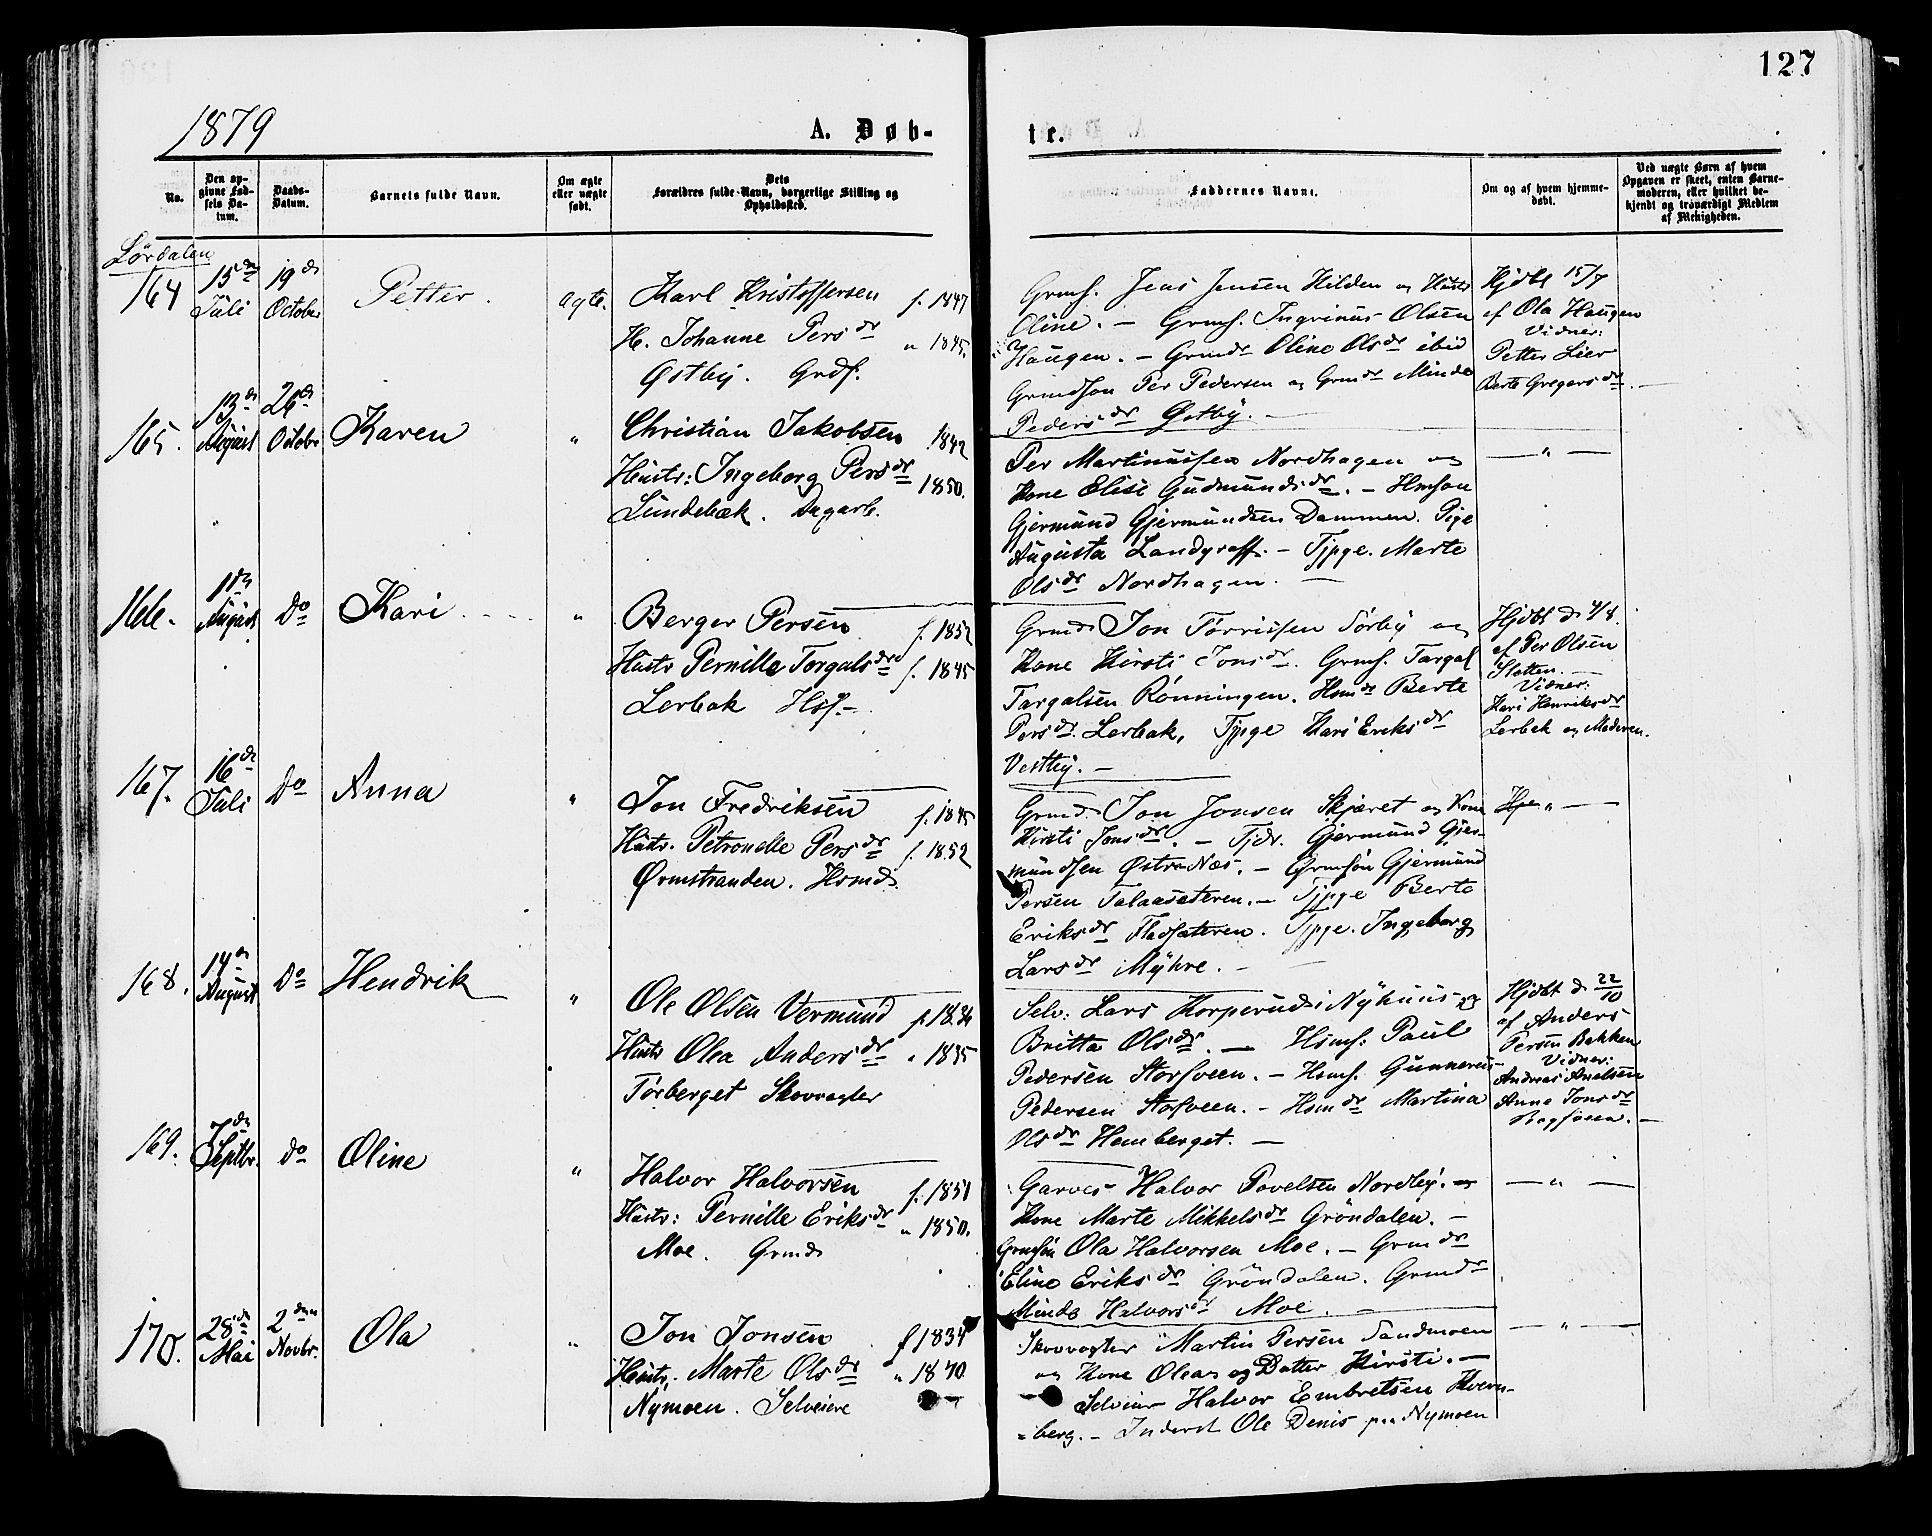 127
1879
A. Døb-
te.
No.
Den op-
givne Fød-
sels Da-
tum.
Daabs-
Datum.
Barnets fulde Navn.
Om ægte
eller uægte
født.
Dets
Forældres fulde Navn, borgerlige Stilling og
Opholdssted.
Faddernes Navne.
Om og af hvem hjemme-
døbt.
Ved uægte Børn af hvem
Opgaven er skeet, enten Barne-
moderen, eller hvilket be-
kjendt og troværdigt Medlem
af Menigheden.
Lørdalen
164 15de Juli 19de October Petter. ægte.
Karl Kristoffersen f. 1847
H. Johanne Persdr " 1845.
Østby. Grdf.
Grmf. Jens Jensen Hilden og Hustr
Oline. — Grmf. Ingrinus Olsen
Haugen. — Grmdr Oline Olsdr ibid
Grmdson Per Pedersen og Grmdr Minda
Pedersdr Østby. —
Hjdbt 15/7
af Ola Haugen
Vidner:
Petter Lier
Berte Gregersdr. —
165. 13de August 26de Octobr Karen "
Christian Jakobsen 1842
Hustr: Ingeborg Persdr 1850.
Lundebæk. Dagarb.
Per Martinussen Nordhagen og
Kone Elise Gudmundsdr. — Hmson
Gjermund Gjermundsen Dammen. Pige
Augusta Landgraff. — Tjpge. Marte
Olsdr Nordhagen. —
— " —
166. 1de August Do Kari "
Berger Persen f. 1852
Hustr Pernille Torgalsdr f. 1845
Lerbak Hsf. —
Grmd Jon Tørrissen Sørby og
Kone Kirsti Jonsdr. Grmf. Targal
Targalsen Rønningen. Hsmdr Berte
Persdr. Lerbak, Tjpge Kari Eriksdr
Vestby. —
Hjdbt d 4/8.
af Per Olsen
Slotten. —
Vidner:
Kari Henriksdr
Lerbek og Moderen.
167. 16de Juli Do Anna "
Jon Fredriksen f. 1845
Hustr. Petronelle Persdr f. 1852
Ørmstranden. Hsmd.
Grmd. Jon Jonsen Skjæret og Kone
Kirsti Jonsdr. — Tjdr. Gjermund Gjer-
mundsen Østre Næs. — Grmsøn Gjermund
Persen Talaasæteren. — Tjpge Berte
Eriksdr Fladsæteren. Tjpge. Ingeborg
Larsdr Myhre. —
" —
168. 14de August Do Hendrik "
Ole Olsen Vermund f. 1834
Hustr Olea Andersdr " 1835
Tørberget Skovvogter
Selv: Lars Korperud i Nyhuus og
Britta Olsdr. — Hsmf: Paul
Pedersen Storsveen. — Hsmf. Gunnerus
Pedersen Storsveen. — Hsmdr Martina
Olsdr Hemberget. —
Hjdbt d 22/10
af Anders
Persen Bakken
Vidner:
Andreas Axelsen
Anna Jonsdr
169. 7de Septbr. do Oline "
Halvor Halvorsen f. 1851
Hustr: Pernille Eriksdr " 1850.
Moe. Grmd
Garver Halvor Povelsen Nordby. og
Kone Marte Mikkelsdr Grøndalen. —
Grmsøn Ola Halvorsen Moe. — Grmdr
Eline Eriksdr Grøndalen. Grmdr
Minda Halvorsdr Moe. —
— " —
170. 28de Mai 2den Novbr. Ola "
Jon Jonsen f 1834
Hustr. Marte Olsdr " 1840
Nymoen. Selveiere
Skovvogter Martin Persen Sandmoen
og Kone Olea og Datter Kirsti. —
Selveier Halvor Embretsen Kvern-
berg. — Inderst Ole Denis paa Nymoen
— " —